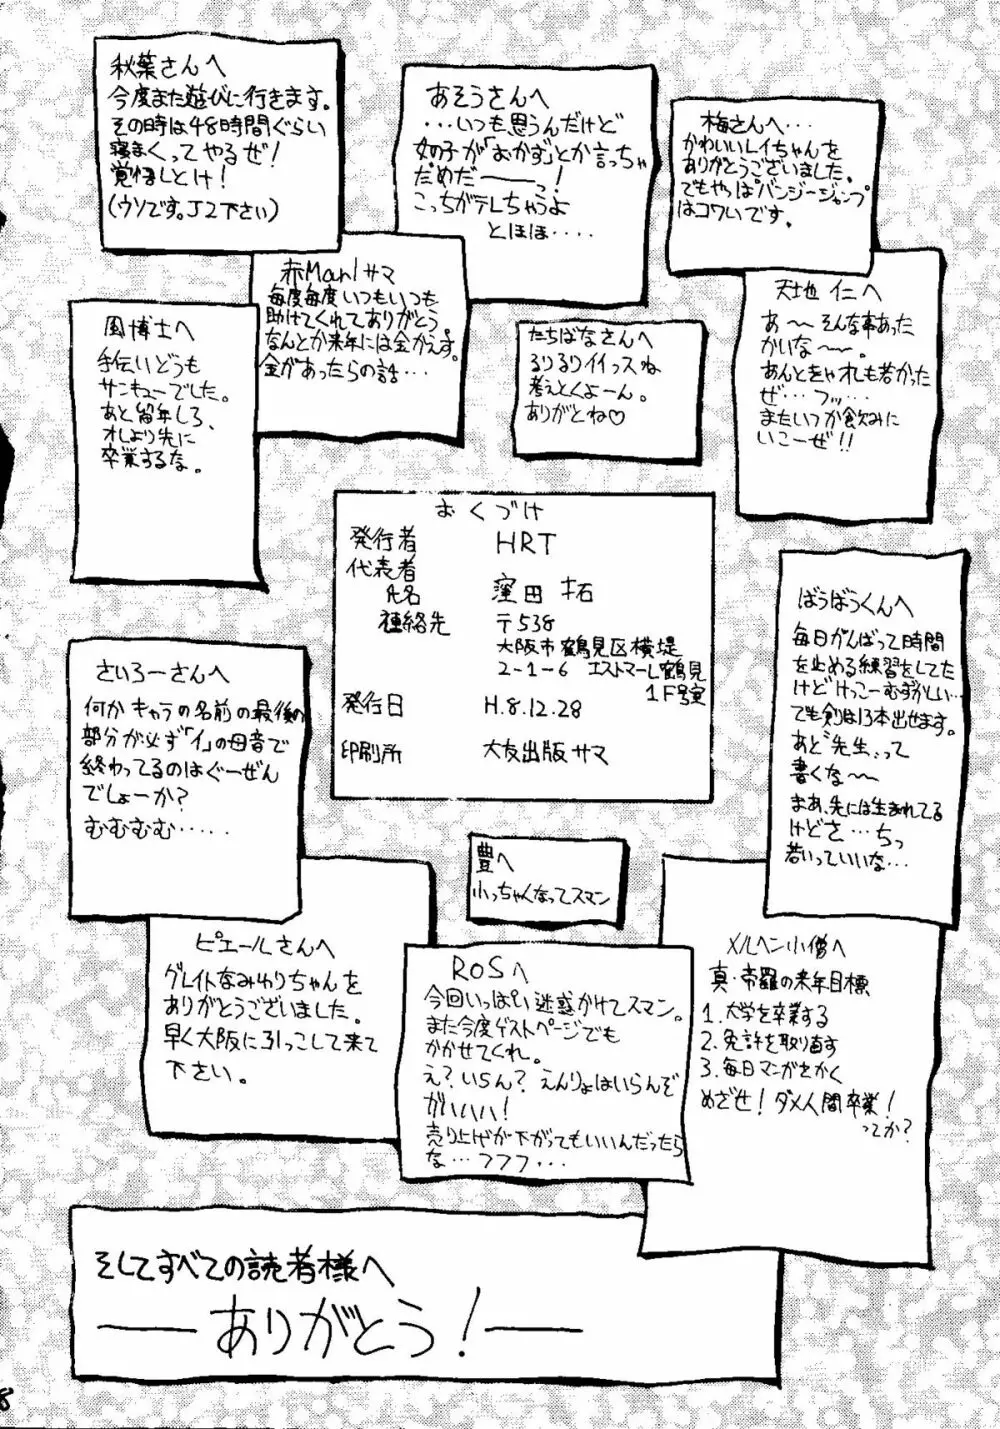 秋葉さんへ
今度また遊びに行きます。
その時は48時間ぐらい
寝まくってやるぜ!
覚悟しとけ!
(ウソです。J2下さい)
あそうさんへ
・・・いつも思うんだけど
女の子が「おかず」とか言っちゃ
だめだ――っ!
こっちがテレちゃうよ
とほほ・・・・
梅さんへ・・・
かわいいレイちゃんを
ありがとうございました。
でもやっぱバンジージャンプ
はコワいです。
赤Marlサマ
毎度毎度いつもいつも
助けてくれてありがとう
なんとか来年には金かえす。
金があったらの話・・・
天地 仁へ
あ〜〜そんな事あった
かいな〜〜。
あんときゃオレも若かった
ぜ・・・フッ・・・
またいつか飲みに
いこーぜ!!
風博士へ
手伝いどうも
サンキューでした。
あと留年しろ、
オレより先に
卒業するな。
たちばなさんへ
るりるりイイっスね
考えとくよーん。
ありがとね♡
おくづけ
発行者 HRT
代表者
氏名 窪田 拓
連絡先 〒538
大阪市鶴見区横堤
2-1-6 エストマール鶴見
1F号室
発行日 H.8.12.28
印刷所 大友出版サマ
ばうばうくんへ
毎日がんばって時間
を止める練習をしてた
けどけっこーむずかしい・・・
でも剣は13本出せます。
あと"先生"って
書くな〜〜
まあ、先には生まれてる
けどさ・・・ちっ
若いっていいな・・・
さいろーさんへ
何かキャラの名前の最後の
部分が必ず「イ」の母音で
終わってるのはぐーぜん
でしょーか?
むむむむ・・・・・
豊へ
小っちゃくなってスマン
ピエールさんへ
グレイトなみゆりちゃんを
ありがとうございました。
早く大阪に引っこして来て
下さい。
ROSへ
今回いっぱい迷惑かけてスマン。
また今度ゲストページでも
かかせてくれ。
え?いらん?えんりょはいらんぞ
がハハハ!
売り上げが下がってもいいんだったら
な・・・フフフ・・・
メルヘン小僧へ
真・帝羅の来年目標
1.大学を卒業する
2.免許を取り直す
3.毎日マンガをかく
めざせ!ダメ人間卒業!
ってか?
そしてすべての読者様へ
――ありがとう!――
8